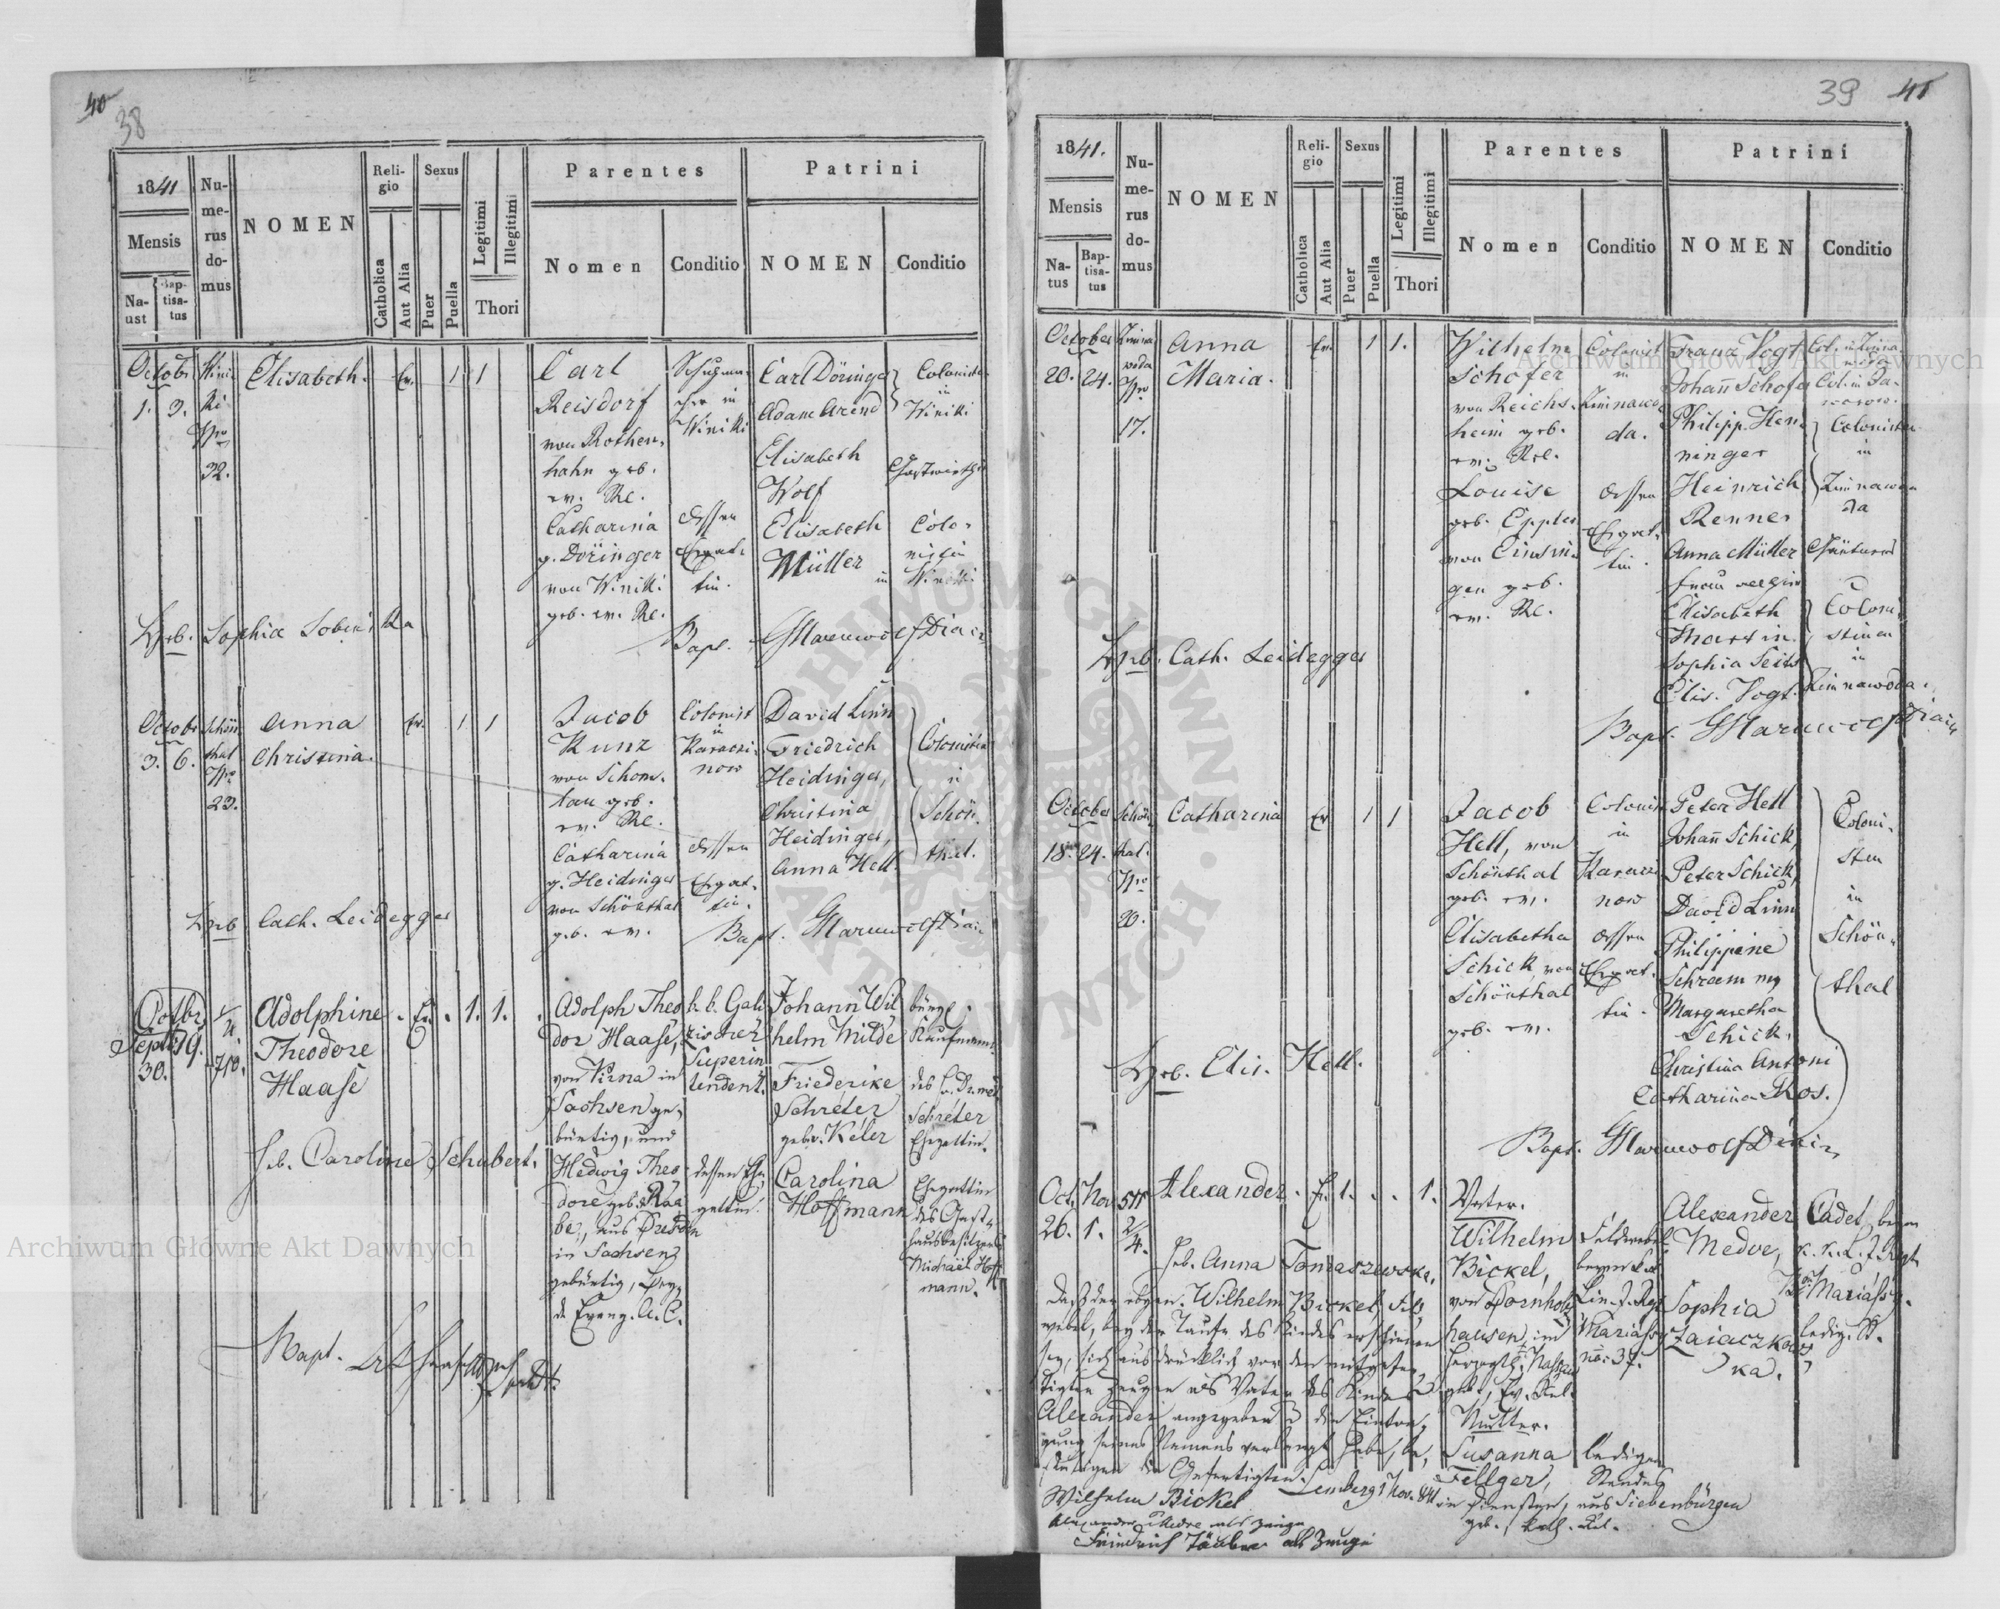 40
38
1841
Mensis
Na-
ust
Bap-
tisa-
tus
Nu-
me-
rus
do-
mus
NOMEN
Reli-
gio
Catholica
Aut Alia
Sexus
Puer
Puella
Legitimi
Illegitimi
Thori
Parentes
Nomen
Conditio
Patrini
NOMEN
Conditio
Octob.
1. 3.
Wini-
ki
Nro
32.
Elisabeth.
Ev.
1
1
Carl
Reisdorf
von Rothen-
hahn geb.
ev. Re.
Catharina
g. Döringer
von Winiki
geb. ev. Re.
in
Winiki
dessen
Ehegat-
tin.
Carl Döringer
Adam Arend
Elisabeth
Wolf
Elisabeth
Müller
Colonisten
in
Winiki
Colo-
nistin
in Winiki
Heb. Sophia Sobinska
Bapt. GMarwolf Diac.
Octob.
3. 6.
Schön-
thal
Nro
23.
Anna
Christina.
Ev.
1
1
Jacob
Kunz
von Schom-
lau geb.
ev. Re.
Catharina
g. Heidinger
von Schönthal
geb. ev.
Colonist
in
Karaczi-
now
dessen
Ehegat-
tin.
David Linn
Friedrich
Heidinger,
Christina
Heidinger,
Anna Hell.
Colonisten
in
Schön-
thal.
Heb. Cath. Leidegger
Bapt. GMarwolf Diac.
Octbr.
Septbr 19.
30.
710.
Adolphine
Theodore
Haase
Ev.
1.
1.
Adolph Theo
dor Haase,
von Pirna in
Sachsen ge-
bürtig, und
Hedwig Theo-
dore geb. Raa
be, aus Dresden
in Sachsen
gebürtig, bey-
de Evang. A. C.
k. k. Gali
zischer
Superin
tendent.
dessen Ehe
gattin.
Johann Wil
helm Milde
Friederike
Schréter
gebor. Kéler
Carolina
Hoffmann
bürgl.
Kaufmann.
des H. Dr. med.
Schréter
Ehegattin.
Ehegattin
des Gast-
hausbesitzers
Michael Hoff
mann.
Heb. Caroline Schubert.
Bapt.
39
41
1841.
Mensis
Na-
tus
Bap-
tisa-
tus
Nu-
me-
rus
do-
mus
NOMEN
Reli-
gio
Catholica
Aut Alia
Sexus
Puer
Puella
Legitimi
Illegitimi
Thori
Parentes
Nomen
Conditio
Patrini
NOMEN
Conditio
October
20. 24.
Zimna
woda
Nro
17.
Anna
Maria.
Ev.
1
1.
Wilhelm
Schöfer
von Reichs-
heim geb.
ev. Re.
Louise
geb. Eppler
von Einsin-
gen geb.
ev. Re.
Colonist
in
Zimnawo-
da.
dessen
Ehegat-
tin.
Franz Vogt
Johañ Schöfer
Philipp Hen-
ninger
Heinrich
Renner
Anna Müller
Elisabeth
Martin
Sophia Seitz
Elis. Vogt.
Col. in Zimna
woda
Colonisten
in
Zimnawo
da
Coloni-
stinen
in
Zimnawoda.
Heb. Cath. Leidegger
Bapt. GMarwolf Diac.
October
18. 24.
Schön-
thal.
Nro
20.
Catharina
Ev
1
1
Jacob
Hell, von
Schönthal
geb. ev.
Elisabetha
Schick, von
Schönthal
geb. ev.
Colonist
in
Karaczi
now
dessen
Ehegat-
tin.
Peter Hell
Johañ Schick,
Peter Schick,
David Linn
Philippine
Schramm
Margaretha
Schick.
Christina Antoni
Catharina Ros.
Coloni-
sten
in
Schön-
thal
Heb. Elis. Hell.
Bapt. GMarwolf Diac.
Oct. Nov
26. 1.
511
2/4.
Alexander.
Ev.
1.
1.
Vater.
Wilhelm
Bickel,
von Dornholz
hausen, im
Herzogth. Nassau
geb., Ev. Rel.
Mutter.
Susanna
Fellger,
Feldwebel
beym Löbl
Lin. I. Rgt
Mariássy
no. 37.
lediger
Standes
in Diensten, aus Siebenbürgen
geb., kath. Rel.
Alexander
Medve,
Sophia
Zaiaczkows
ka.
Cadet beym
k. k. L. I. Rgt
Mariássy.
ledig. St.
Heb. Anna Tomaszewska.
Daß der obgen. Wilhelm Bickel, Feld
webel, bey der Taufe des Kindes erschienen
sey, sich ausdrücklich vor den mitgefer-
tigten Zeugen als Vater des Kindes
Alexander angegeben u. die Eintra-
gung seines Namens verlangt habe, be-
stätigen die Gefertigten. Lemberg 1 Nov. 841
Wilhelm Bickel
Alexander Medve als Zeuge
Friedrich Täuber als Zeuge
Archiwum Główne Akt Dawnych
Archiwum Główne Akt Dawnych
ARCHIWUM GŁÓWNE AKT DAWNYCH